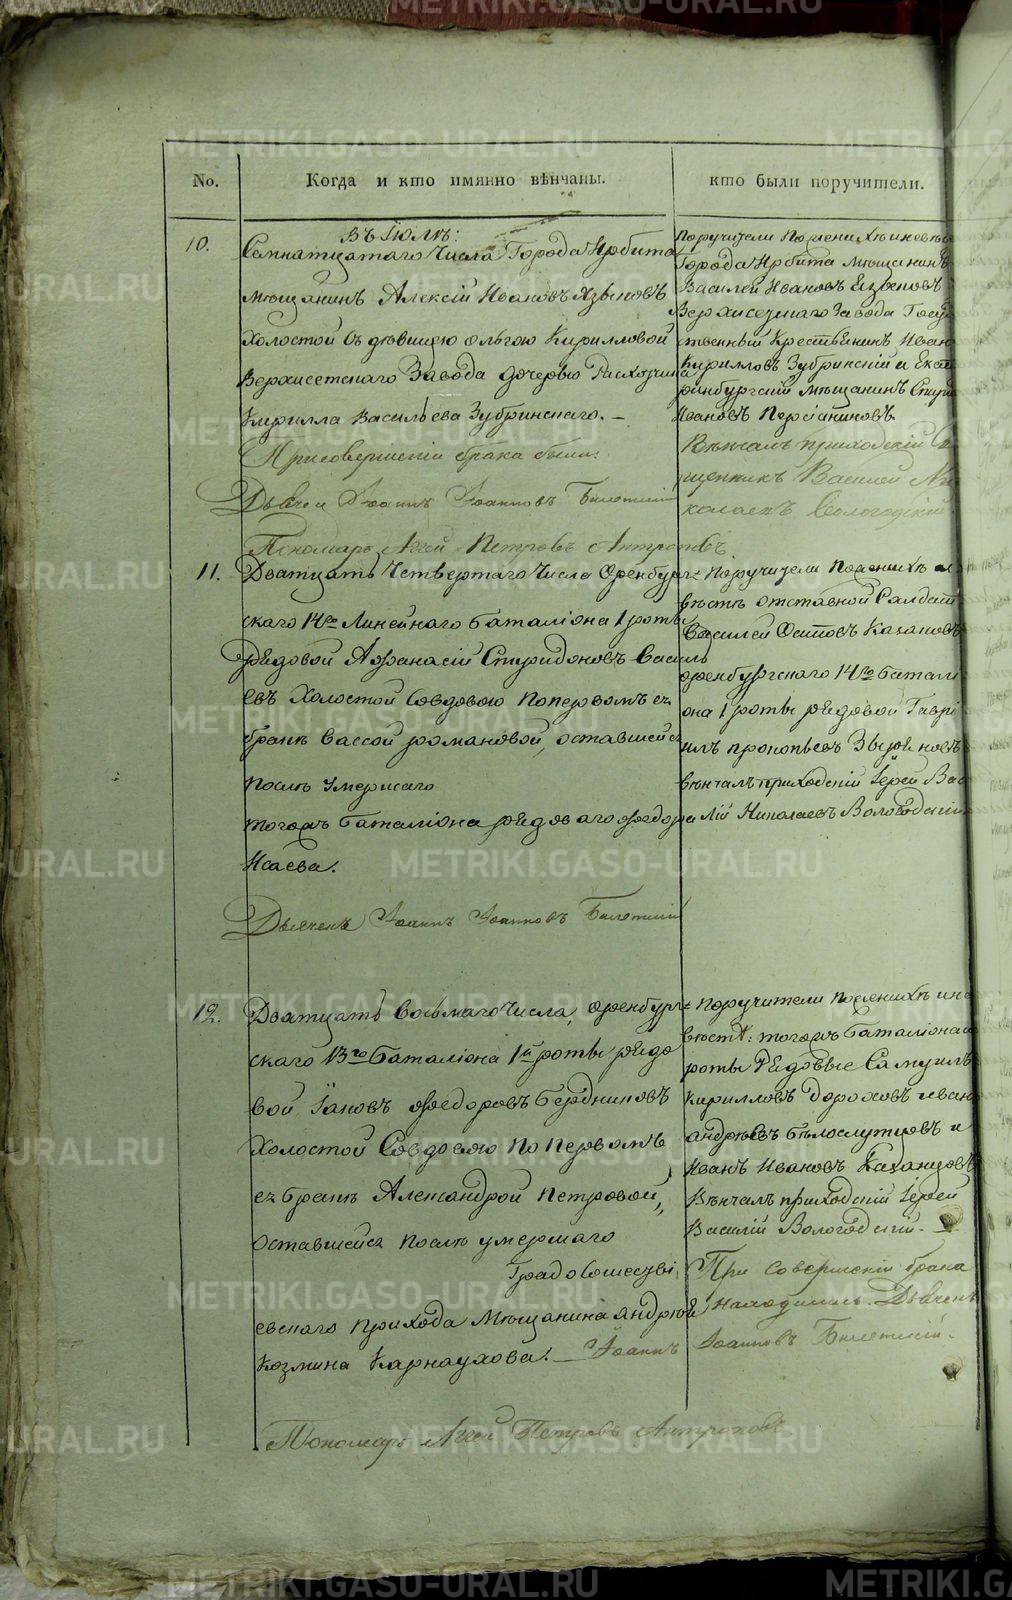 No.
Когда и кто имянно вѣнчаны.
кто были поручители.
10.
Въ Іюлѣ:
Семнатцатаго Числа Города Ирбита
мѣщанинъ Алексій Ивановъ Языковъ
Холостой съ дѣвицею Ольгою Кирилловой
Верхисетскаго Завода дочерью
Кирилла Васильева Зубринскаго. –
При совершеніи брака были:
Дьячекъ Іоаннъ Іоанновъ
Пономарь Аггей Петровъ Антроповъ
Поручители По женихѣ и невѣ
Города Ирбита мѣщанинъ
Василей Ивановъ Езыковъ
Верхисецкаго Завода Госу
ственный Крестьянинъ Иван
Кирилловъ Зубринскій и Екат
ринбургскій мѣщанинъ
Ивановъ
Вѣнчалъ приходскій С
щенникъ Василей Ни
колаевъ Вологодскій
11.
Дватцать Четвертаго Числа Оренбург=
скаго 14го Линейнаго Баталіона 1 роты
рядовой Афанасій Спиридоновъ Василь
евъ Холостой Совдовою по первомъ ея
бракѣ Вассой Романовой, оставшейся
послѣ умершаго
тогожъ Баталіона рядоваго Феодора
Исаева.
Дьячекъ Іоаннъ Іоанновъ
Поручители По женихѣ и не
вѣстѣ отставной Салдатъ
Василей Осиповъ Казаковъ
Оренбургскаго 14го Батали
она 1 роты рядовой Гаврі
илъ Прокопьевъ
вѣнчалъ приходскій Іерей Вас
лій Николаевъ Вологодскій
12.
Дватцать Восьмаго Числа, Оренбург=
скаго 13го Баталіона 1й роты рядо
вой Іаковъ Феодоровъ Бердниковъ
Холостой Совдовою по первомъ
ея бракѣ Александрой Петровой,
оставшейся послѣ умершаго
Градо Сошестві
евскаго прихода Мѣщанина Андрея
Козмина Карнаухова. – Іоаннъ Іоанновъ
Пономарь Аггей Петровъ Антроповъ
Поручители по женихѣ и не
вѣстѣ: тогожъ Баталіона
роты Рядовые Самуилъ
Кирилловъ Дороховъ Иван
Андреевъ Бѣлослутцовъ и
Иванъ Ивановъ Казанцовъ
Вѣнчалъ приходскій Іерей
Василій Вологодскій. –
При совершеніи брака
находились Дьячекъ
METRIKI.GASO-URAL.RU